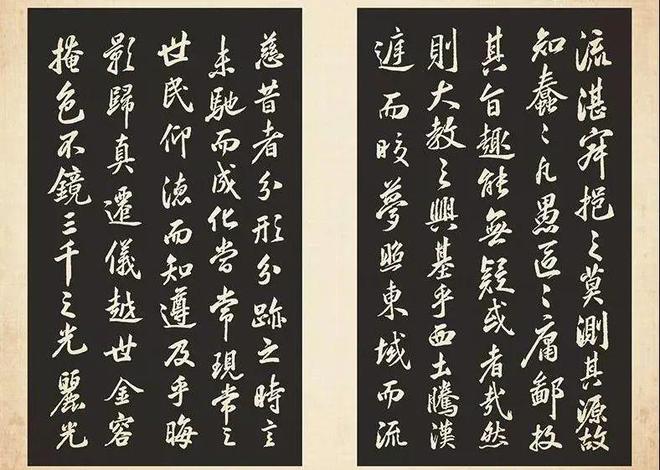 流湛寂挹之莫測其源故
知蠢〻凡愚區〻庸鄙投
其旨趣能無疑或者哉然
則大教之興基乎西土騰漢
庭而皎夢照東域而流
慈昔者分形分跡之時言
未馳而成化當常現常之
世民仰德而知遵及乎晦
影歸真遷儀越世金容
掩色不鏡三千之光麗光